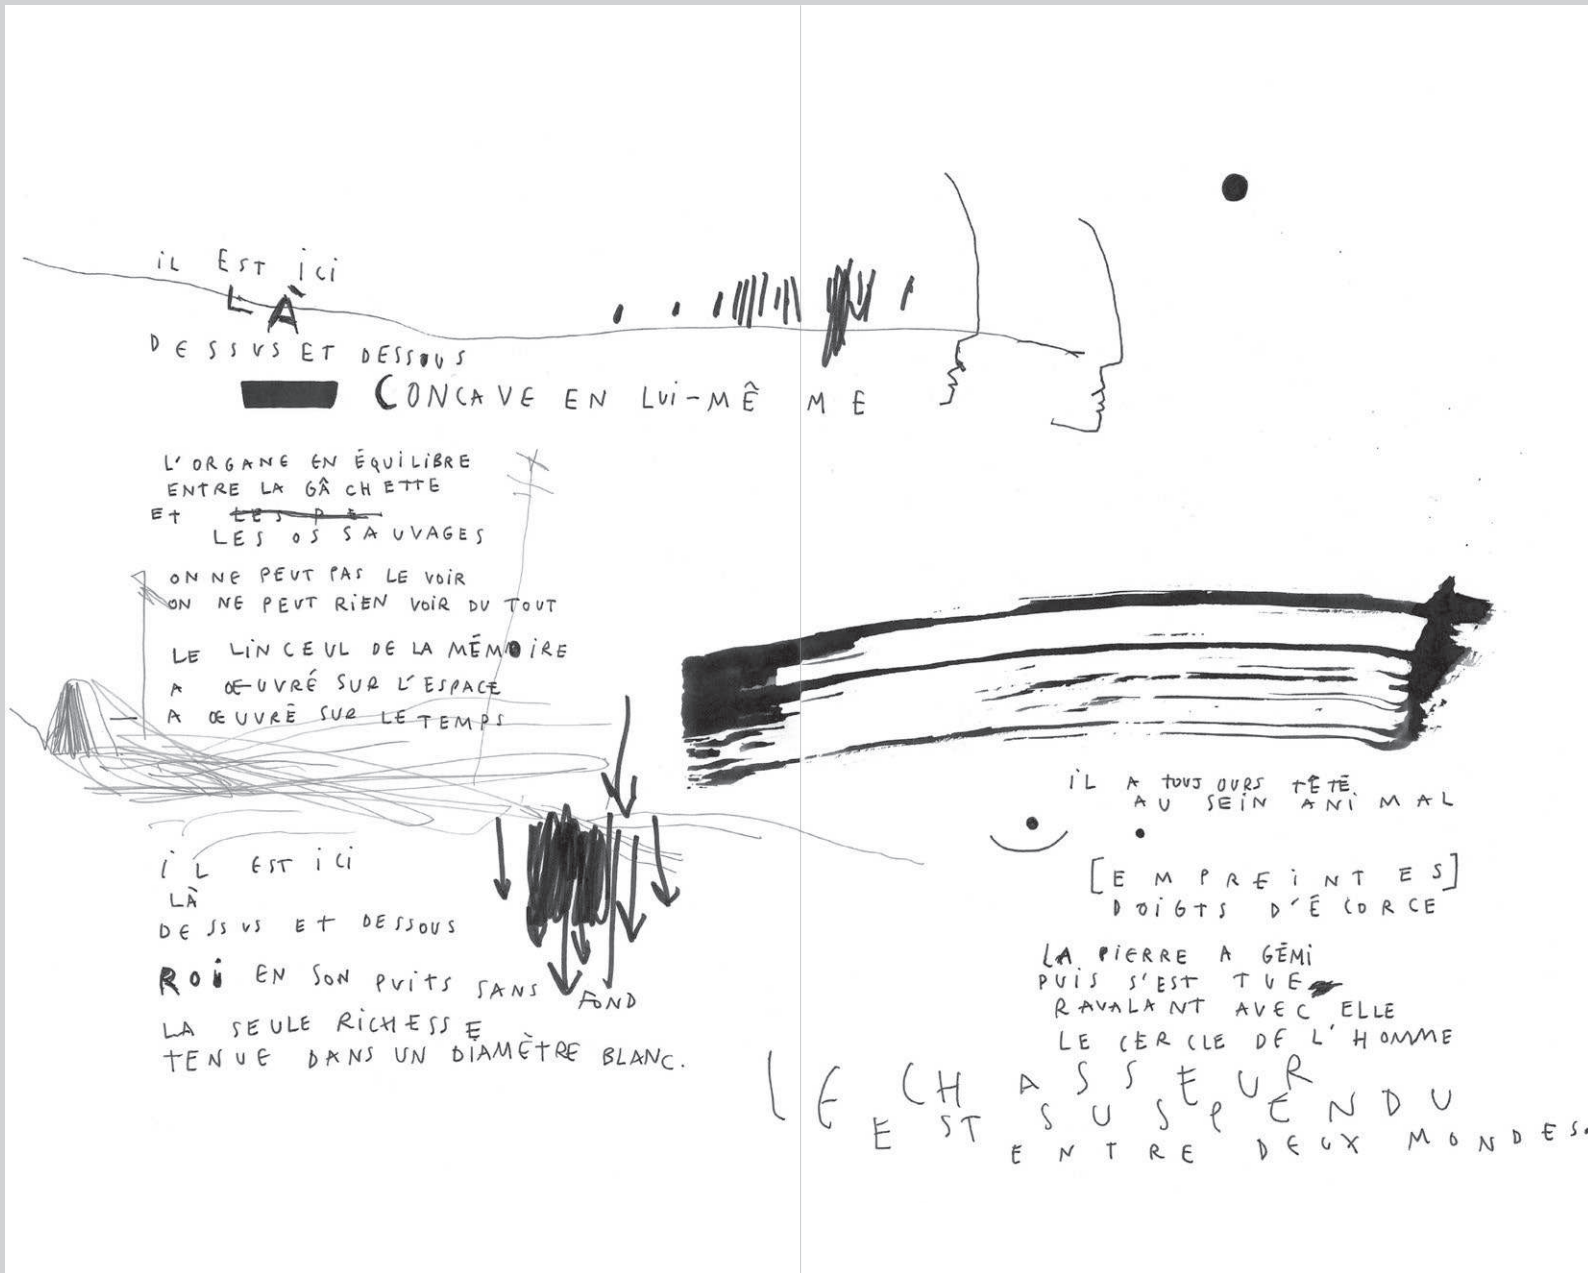 iL EST ici
LÀ
DESSUS ET DESSOUS
CONCAVE EN LUi-MÊME
L'ORGANE EN ÉQUiLiBRE
ENTRE LA GÂCHETTE
ET
LES OS SAUVAGES
ON NE PEUT PAS LE VOiR
ON NE PEUT RiEN VOiR DU TOUT
LE LiNCEUL DE LA MÉMOiRE
A ŒUVRÉ SUR L'ESPACE
A ŒUVRÉ SUR LE TEMPS
iL EST iCi
LÀ
DESSUS ET DESSOUS
ROi EN SON PUiTS SANS FOND
LA SEULE RiCHESSE
TENUE DANS UN DiAMÈTRE BLANC.
iL A TOUJOURS TÉTÉ
AU SEiN ANiMAL
[EMPREiNTES]
DOiGTS D'ÉCORCE
LA PiERRE A GÉMi
PUiS S'EST TUE
RAVALANT AVEC ELLE
LE CERCLE DE L'HOMME
LE CHASSEUR
EST SUSPENDU
ENTRE DEUX MONDES.